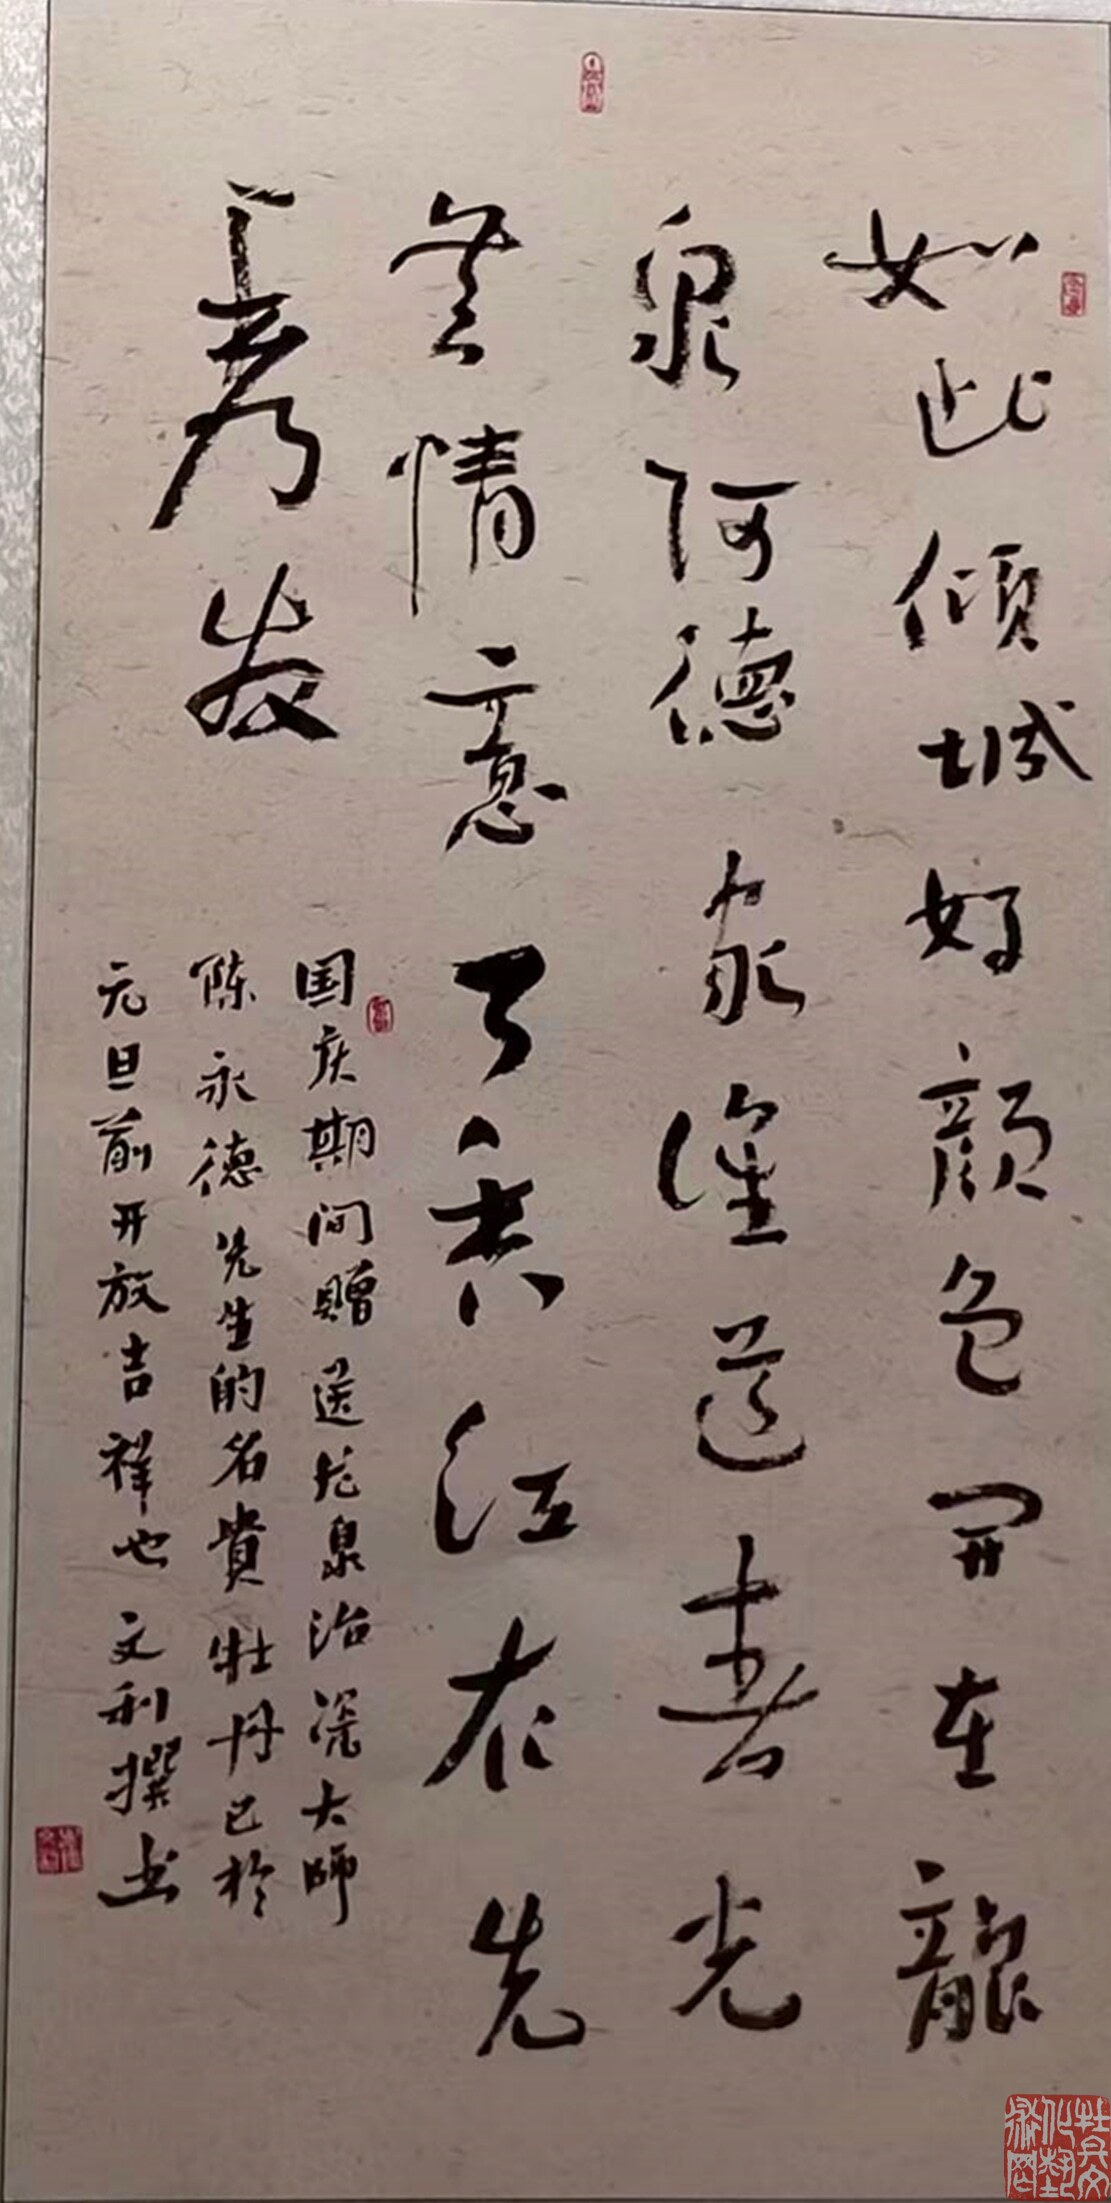 如此倾城好颜色开在龍
泉阿德家谁道春光
無情意丁香红衣先
春发
国庆期间赠送龙泉治瓷大师
陈永德先生的名貴牡丹已於
元旦前开放吉祥也 文利撰书